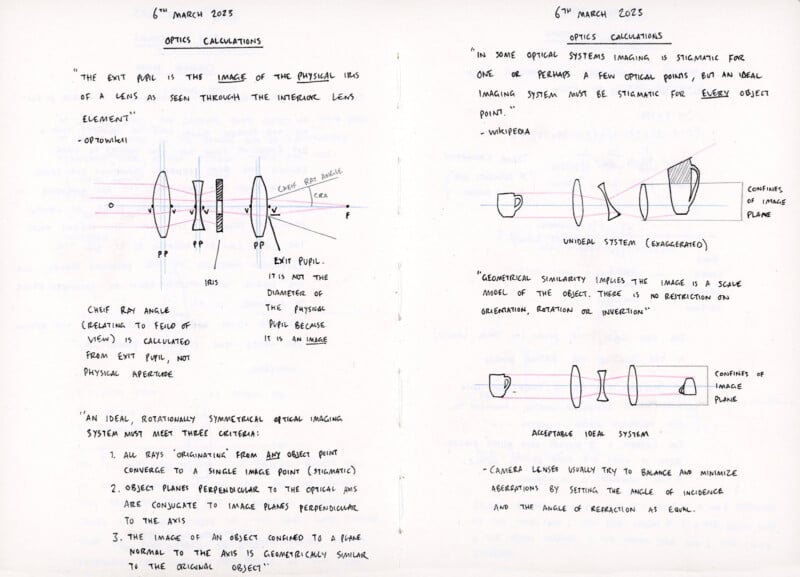 6TH MARCH 2023
OPTICS CALCULATIONS
"THE EXIT PUPIL IS THE IMAGE OF THE PHYSICAL IRIS
OF A LENS AS SEEN THROUGH THE INTERIOR LENS
ELEMENT"
- OPTOWIKI
CHEIF RAY ANGLE
CRA
O
V
V
V
V
V
V
F
PP
PP
PP
IRIS
EXIT PUPIL.
IT IS NOT THE
DIAMETER OF
THE PHYSICAL
PUPIL BECAUSE
IT IS AN IMAGE
CHEIF RAY ANGLE
(RELATING TO FEILD OF
VIEW) IS CALLULATED
FROM EXIT PUPIL, NOT
PHYSICAL APERTUDE
"AN IDEAL, ROTATIONALLY SYMMETRICAL OPTICAL IMAGING
SYSTEM MUST MEET THREE CRITERIA:
1. ALL RAYS 'ORIGINATING' FROM ANY OBJECT POINT
CONVERGE TO A SINGLE IMAGE POINT (STIGMATIC)
2. OBJECT PLANES PERPENDICULAR TO THE OPTICAL AXIS
ARE CONJUGATE TO IMAGE PLANES PERPENDICULAR
TO THE AXIS
3. THE IMAGE OF AN OBJECT CONFINED TO A PLANE
NORMAL TO THE AXIS IS GEOMETRICALLY SIMILAR
TO THE ORIGINAL OBJECT"
6TH MARCH 2023
OPTICS CALCULATIONS
"IN SOME OPTICAL SYSTEMS IMAGING IS STIGMATIC FOR
ONE OR PERHAPS A FEW OPTICAL POINTS, BUT AN IDEAL
IMAGING SYSTEM MUST BE STIGMATIC FOR EVERY OBJECT
POINT."
- WIKIPEDIA
CONFINES
OF IMAGE
PLANE
UNIDEAL SYSTEM (EXAGGERATED)
"GEOMETRICAL SIMILARITY IMPLIES THE IMAGE IS A SCALE
MODEL OF THE OBJECT. THERE IS NO RESTRICTION ON
ORIENTATION, ROTATION OR INVERTION"
CONFINES OF
IMAGE
PLANE
ACCEPTABLE IDEAL SYSTEM
- CAMERA LENSES USUALLY TRY TO BALANCE AND MINIMIZE
ABERRATIONS BY SETTING THE ANGLE OF INCIDENCE
AND THE ANGLE OF REFRACTION AS EQUAL.